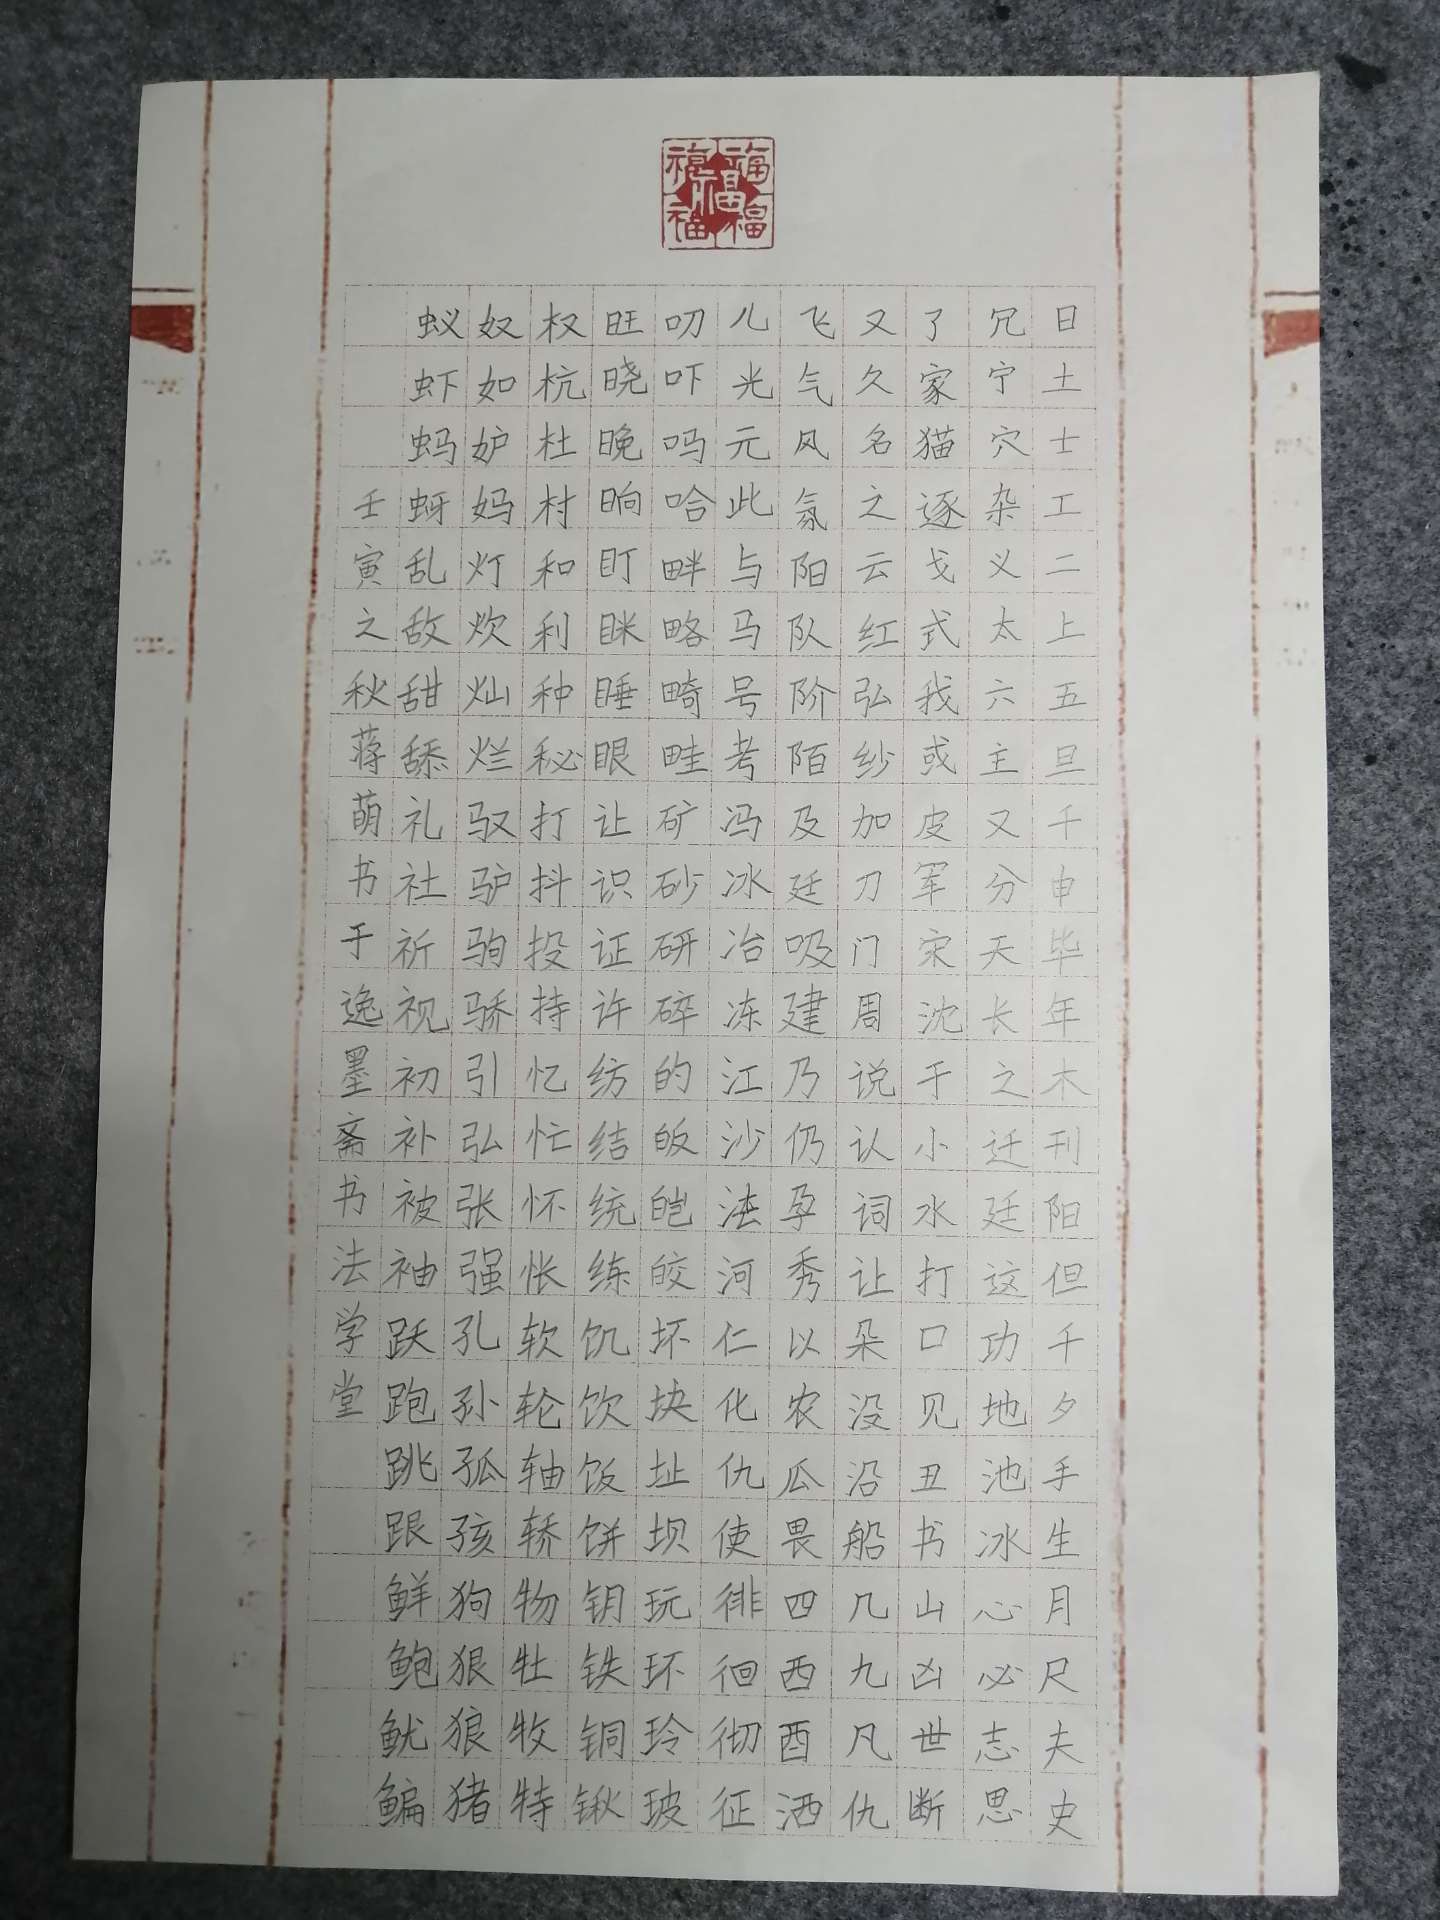 福福福福福
日土士工二上五旦千申毕年木刊阳但千夕手生月尺夫史
冗宁穴杂义太六主又分天长之迁廷这功地池冰心必志思
了家猫逐戈式我或皮军宋沈于小水打口见丑书山凶世断
又久名之云红弘纱加刀门周说认词让朵没沿船几九凡仇
飞气风氛阳队阶陌及廷吸建乃仍孕秀以农瓜畏四西酉洒
儿光元此与马号考冯冰冶冻江沙法河仁化仇使徘徊彻征
叨吓吗哈畔略畸畦矿砂研碎的皈皑皎坏块址坝玩环玲玻
旺晓晚晌盯眯睡眼让识证许纺结统练饥饮饭饼钥铁铜锹
权杭杜村和利种秘打抖投持忆忙怀怅软轮轴轿物牡牧特
奴如妒妈灯炊灿烂驭驴驹骄引弘张强孔孙孤孩狗狠狼猪
蚁虾蚂蚜乱敌甜舔礼社祈视初补被袖跃跑跳跟鲜鲍鱿鳊
壬寅之秋蒋萌书于逸墨斋书法学堂